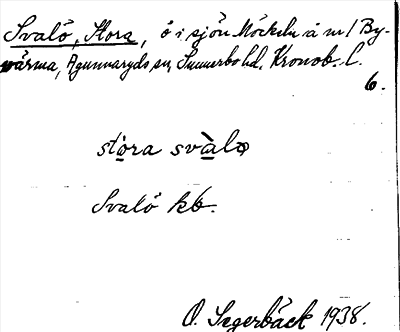 Svalö, Stora, ö i sjön Möckeln å nr 1 By-
värma, Agunnaryds sn, Sunnerbo hd, Kronob. l.
6.
stóra svàlo
Svalö kb.
O. Segerbäck 1938.